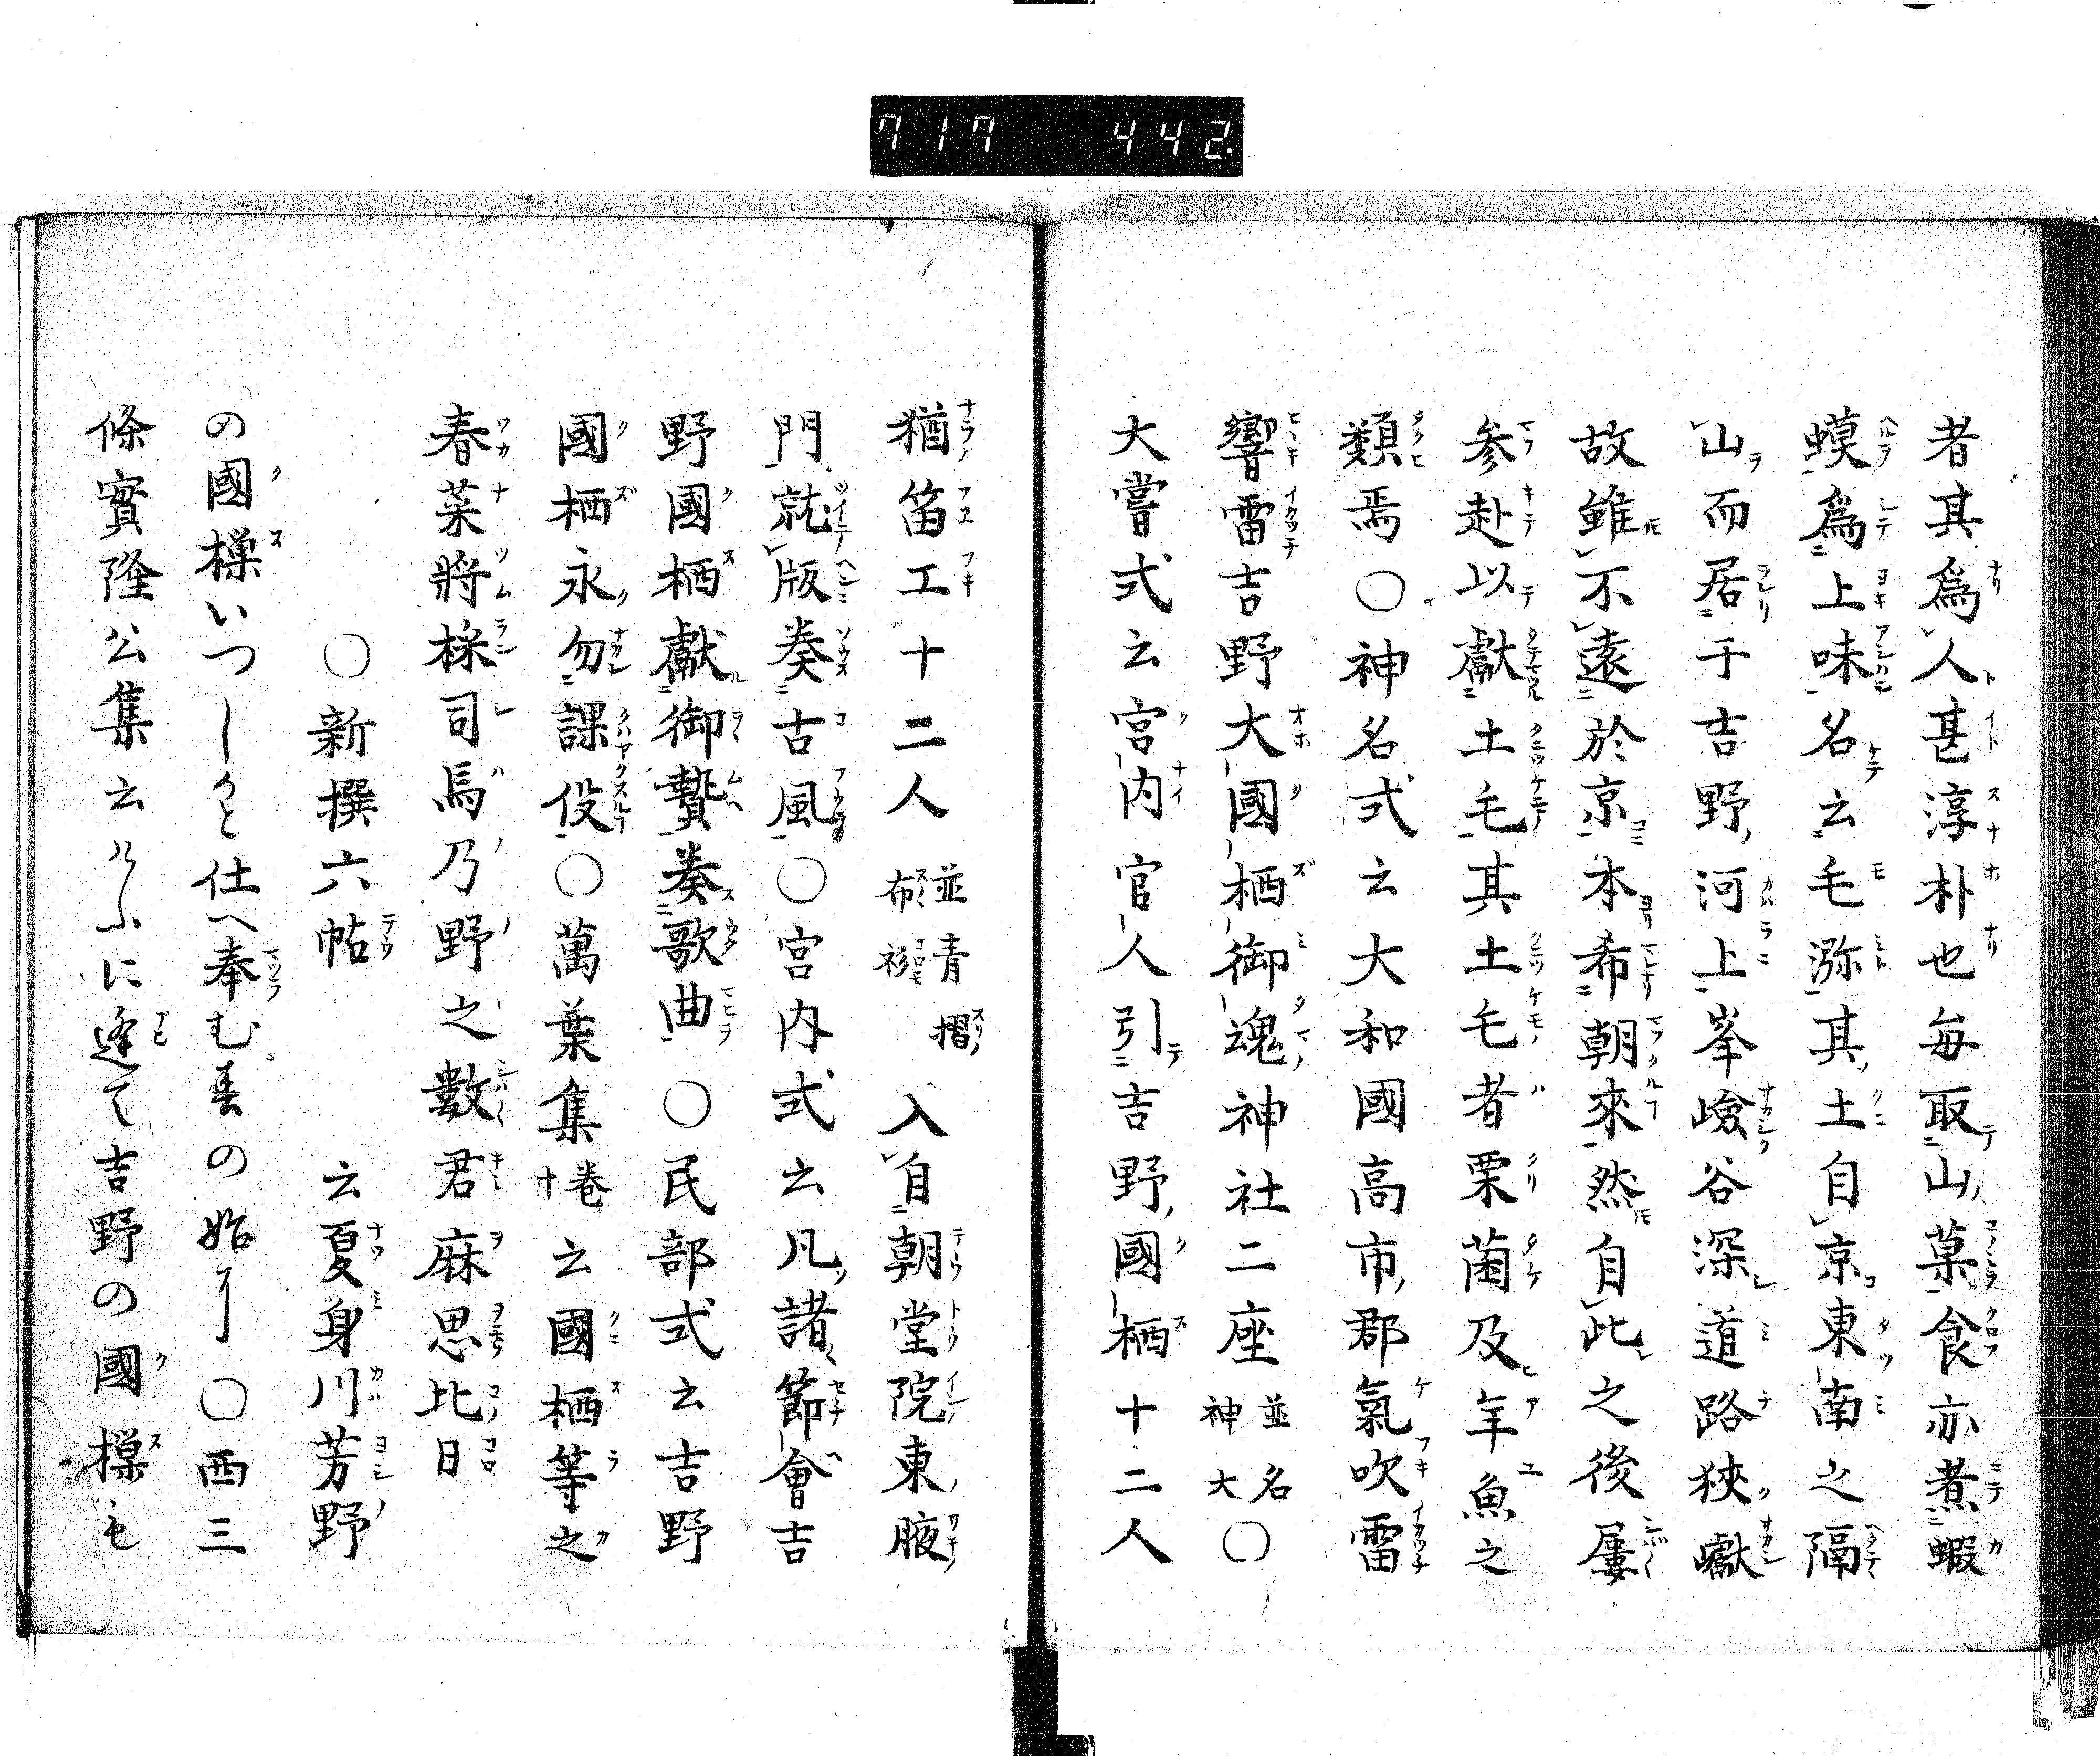 717 442
者其爲人甚淳朴也毎取山菓食亦煮蝦
蟆爲上味名云毛瀰其土自京東南之隔
山而居于吉野河上峯嶮谷深道路狹巘
故雖不遠於京本希朝來然自此之後屢
参赴以獻土毛其土毛者栗菌及年魚之
類焉〇神名式云大和國高市郡氣吹雷
響雷吉野大國栖御魂神社二座並名神大〇
大嘗式云宮内官人引吉野國栖十二人
猶笛工十二人並青摺布衫入自朝堂院東腋
門就版奏古風〇宮内式云凡諸節會吉
野國栖獻御贄奏歌曲〇民部式云吉野
國栖永勿課役〇萬葉集巻十云國栖等之
春菜將採司馬乃野之數君麻思比日
〇新撰六帖 云夏身川芳野
の國樔いつしかと仕へ奉む春の始に〇西三
條實隆公集云けふに逢て吉野の國樔も